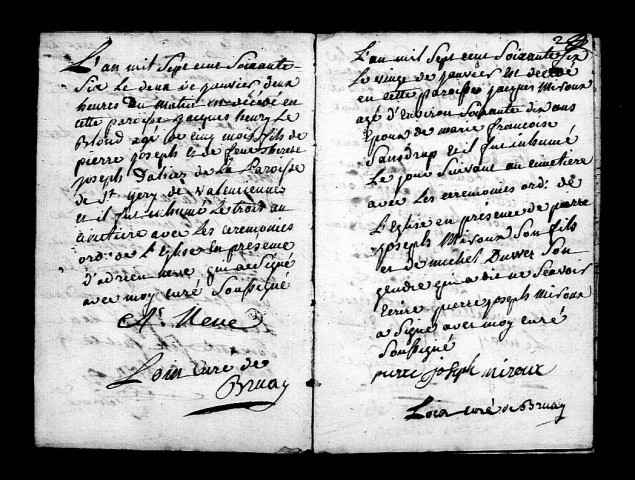 L'an mil Sept cent Soixante-
Six le deux de janvier deux
heures du matin est décédé en
cette paroisse jacques henry Le
Blond agé de cinq mois fils de
pierre joseph et de feue therese
joseph de la Paroisse
de St gery de valenciennes
et il fut inhumé le trois au
cimetiere avec les ceremonies
ord: de L'Eglise en presence
d'adrien nene qui a Signé
avec moy curé Soussigné
A: Nene
Loin curé de
Bruay
L'an mil Sept cent Soixante Six
Le vingt de janvier est décédé
en cette paroisse jacques Miroux
agé d'Environ Soixante dix ans
Epoux de marie francoise
Saudrap et il fut inhumé
Le jour Suivant au cimetiere
avec les ceremonies ord: de
L'Eglise en présence de pierre
joseph Miroux Son fils
et de michel Son
gendre qui a dit ne Scavoir
Ecrire pierre joseph Miroux
a Signé avec moy curé
Soussigné
pierre joseph miroux
Loin curé de Bruay